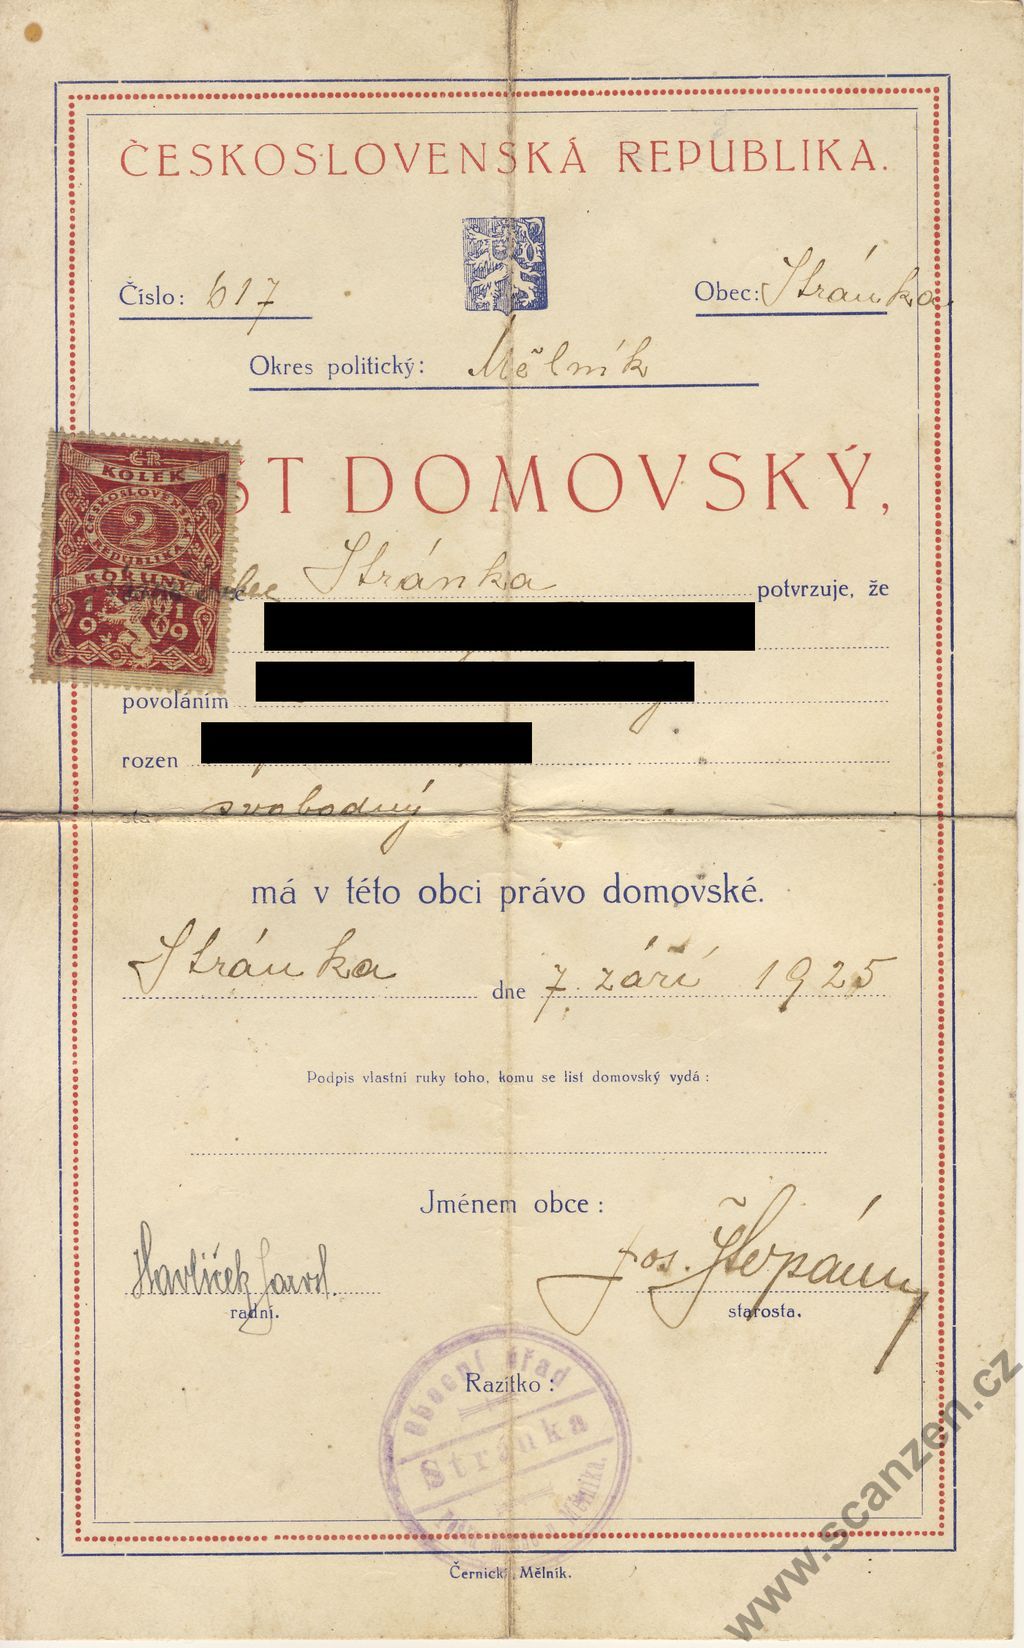 ČESKOSLOVENSKÁ REPUBLIKA.
Číslo: 617
Obec: Stránka
Okres politický: Mělník
ST DOMOVSKÝ,
ČR
KOLEK
ČESKOSLOVENSKÁ
2
REPUBLIKA
KORUNY
1919
Stránka potvrzuje, že
povoláním
rozen
svobodný
má v této obci právo domovské.
Stránka dne 7. září 1925
Podpis vlastní ruky toho, komu se list domovský vydá:
Jménem obce:
Havlíček
Jos. Štěpánu
radní.
starosta.
Razítko:
Obecní úřad
Stránka
Mělníka.
Černický, Mělník.
www.scanzen.cz